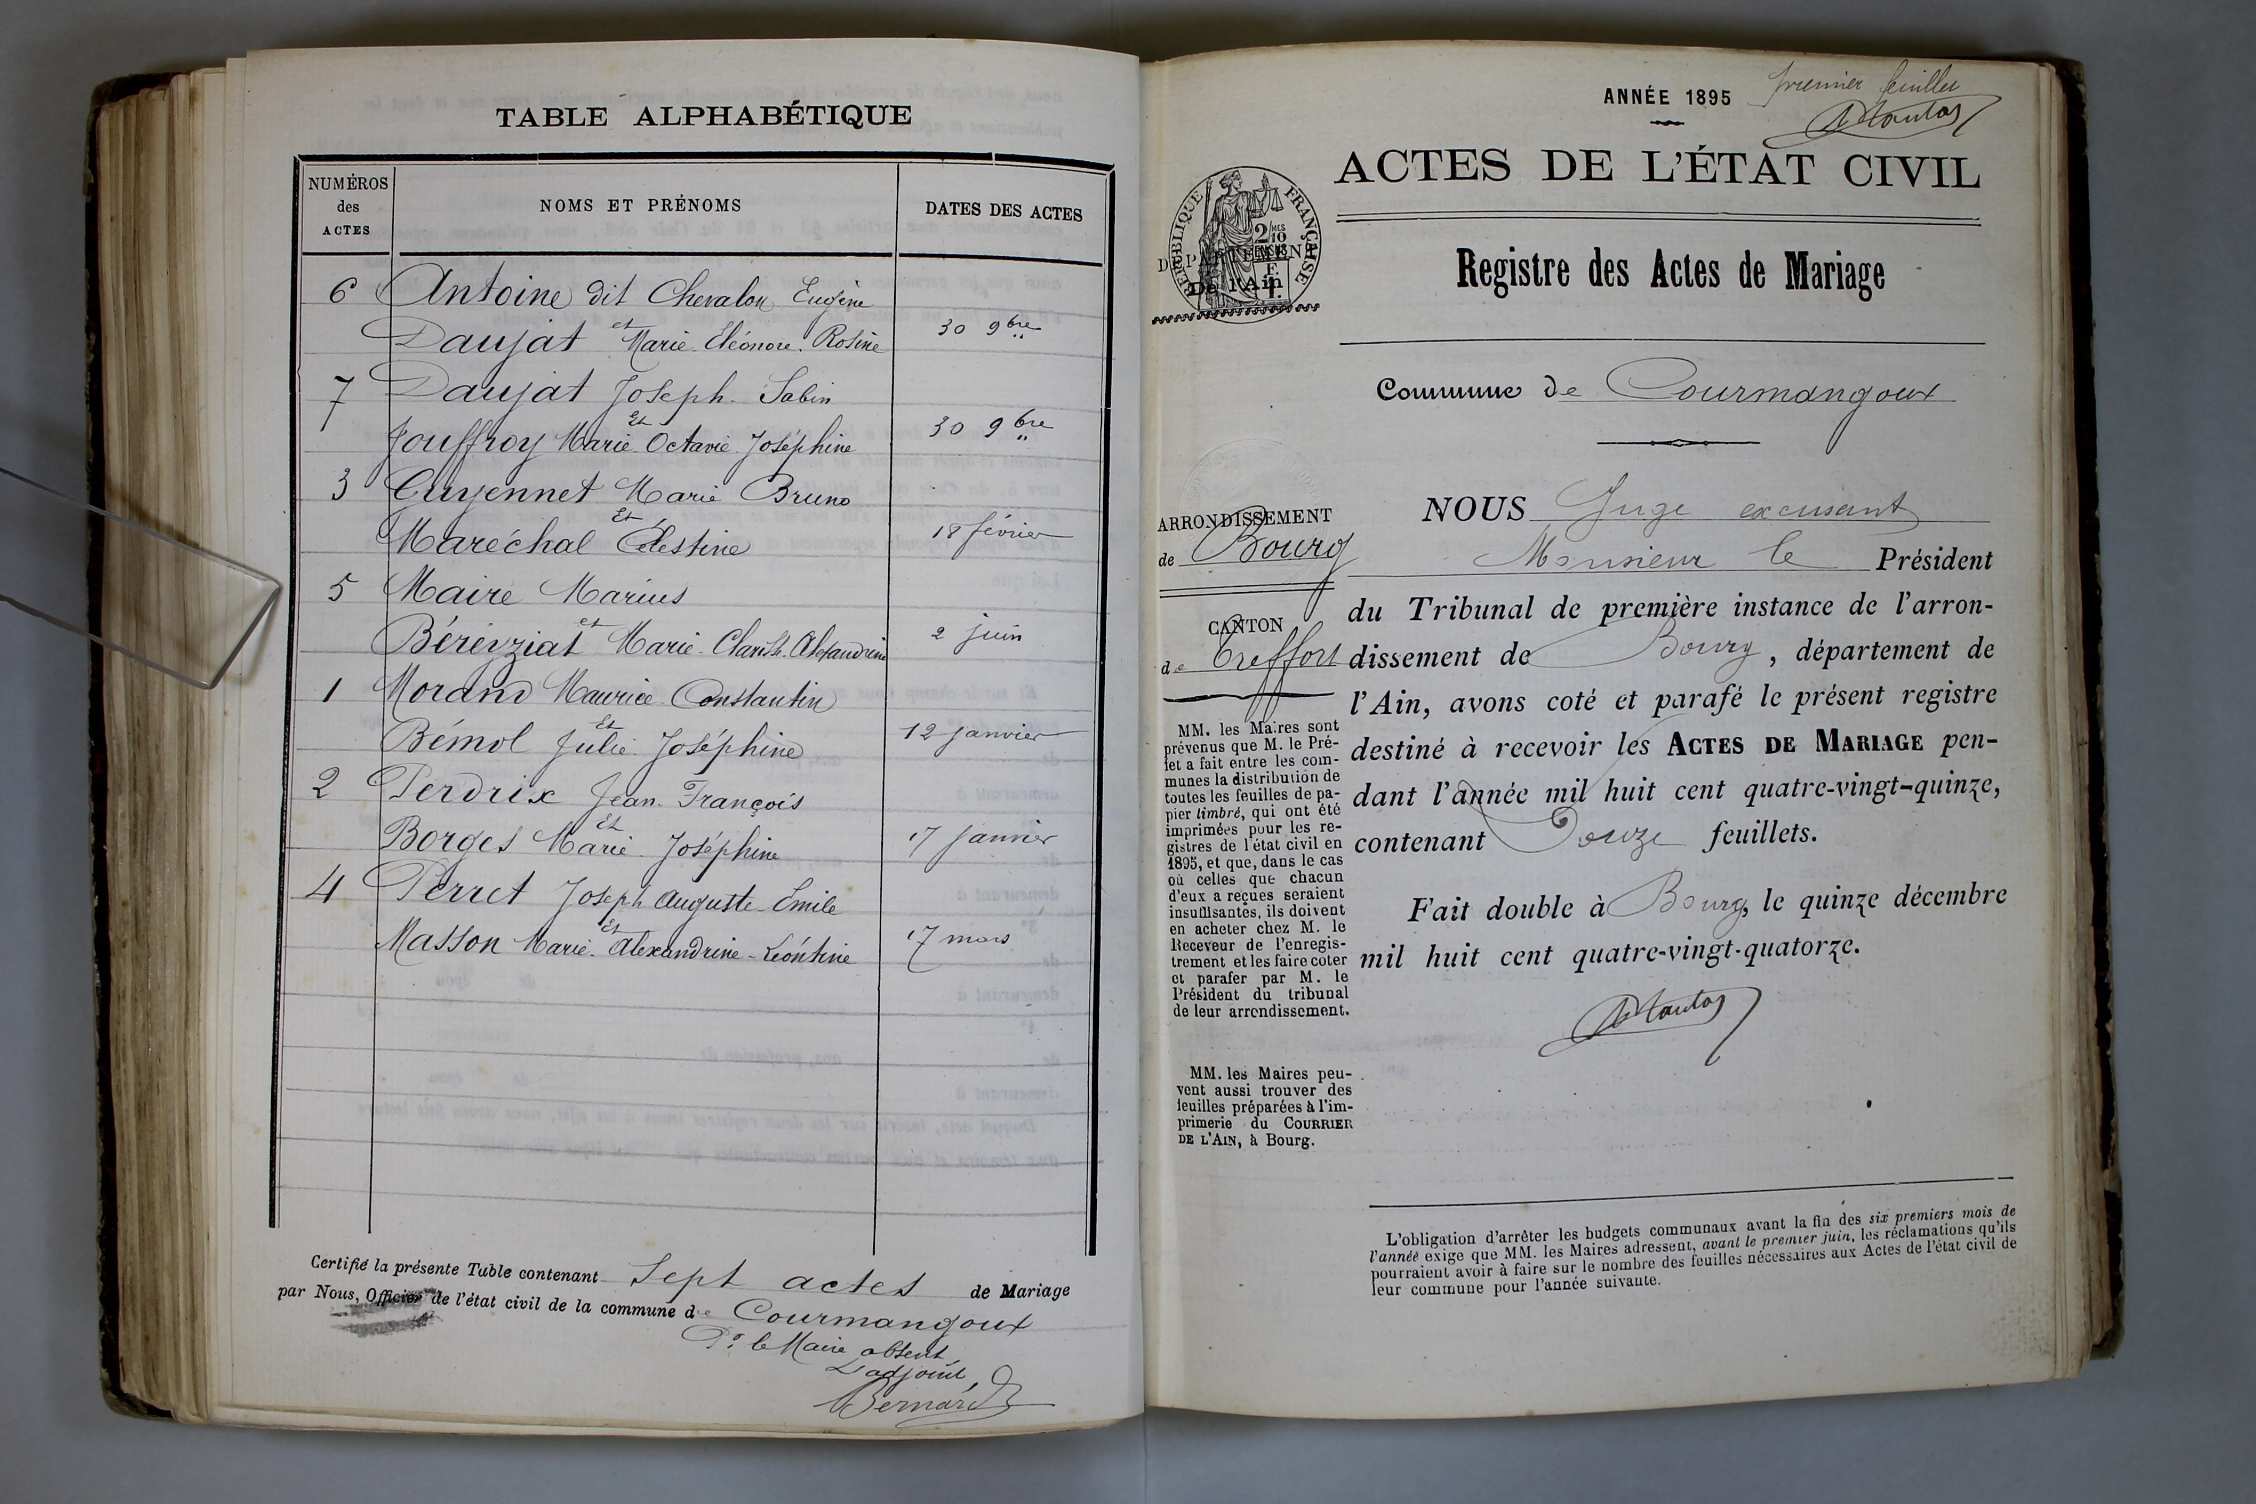 TABLE ALPHABÉTIQUE
NUMÉROS
des
ACTES
NOMS ET PRÉNOMS
DATES DES ACTES
6 Antoine dit Chevalon Eugène
et
Daujat Marie Eléonore Rosine 30 9bre
7 Daujat Joseph Sabin
Et
Jouffroy Marie Octavie Joséphine 30 9bre
3 Guyennet Marie Bruno
Et
Maréchal Célestine 18 février
5 Maire Marius
et
Béréyziat Marie 2 juin
1 Morand Maurice Constantin
Et
Bémol Julie Joséphine 12 janvier
2 Perdrix Jean François
Et
Borges Marie Joséphine 17 janvier
4 Perret Joseph Auguste Emile
Et
Masson Marie Alexandrine Léontine 17 mars
Certifié la présente Table contenant Sept actes de Mariage
par Nous, Officier de l'état civil de la commune de Courmangoux
Pr le Maire absent
L'adjoint,
Bernard
ANNÉE 1895
premier feuillet
ACTES DE L'ÉTAT CIVIL
RÉPUBLIQUE FRANÇAISE
2/10
DÉPARTEMENT
De l'Ain
Registre des Actes de Mariage
Commune de Courmangoux
ARRONDISSEMENT
de Bourg
CANTON
de Treffort
MM. les Maires sont
prévenus que M. le Pré-
fet a fait entre les com-
munes la distribution de
toutes les feuilles de pa-
pier timbré, qui ont été
imprimées pour les re-
gistres de l'état civil en
1895, et que, dans le cas
où celles que chacun
d'eux a reçues seraient
insuffisantes, ils doivent
en acheter chez M. le
Receveur de l'enregis-
trement et les faire coter
et parafer par M. le
Président du tribunal
de leur arrondissement.
MM. les Maires peu-
vent aussi trouver des
feuilles préparées à l'im-
primerie du COURRIER
DE L'AIN, à Bourg.
NOUS Juge excusant
Monsieur le Président
du Tribunal de première instance de l'arron-
dissement de Bourg, département de
l'Ain, avons coté et parafé le présent registre
destiné à recevoir les ACTES DE MARIAGE pen-
dant l'année mil huit cent quatre-vingt-quinze,
contenant Douze feuillets.
Fait double à Bourg, le quinze décembre
mil huit cent quatre-vingt-quatorze.
L'obligation d'arrêter les budgets communaux avant la fin des six premiers mois de
l'année exige que MM. les Maires adressent, avant le premier juin, les réclamations qu'ils
pourraient avoir à faire sur le nombre des feuilles nécessaires aux Actes de l'état civil de
leur commune pour l'année suivante.